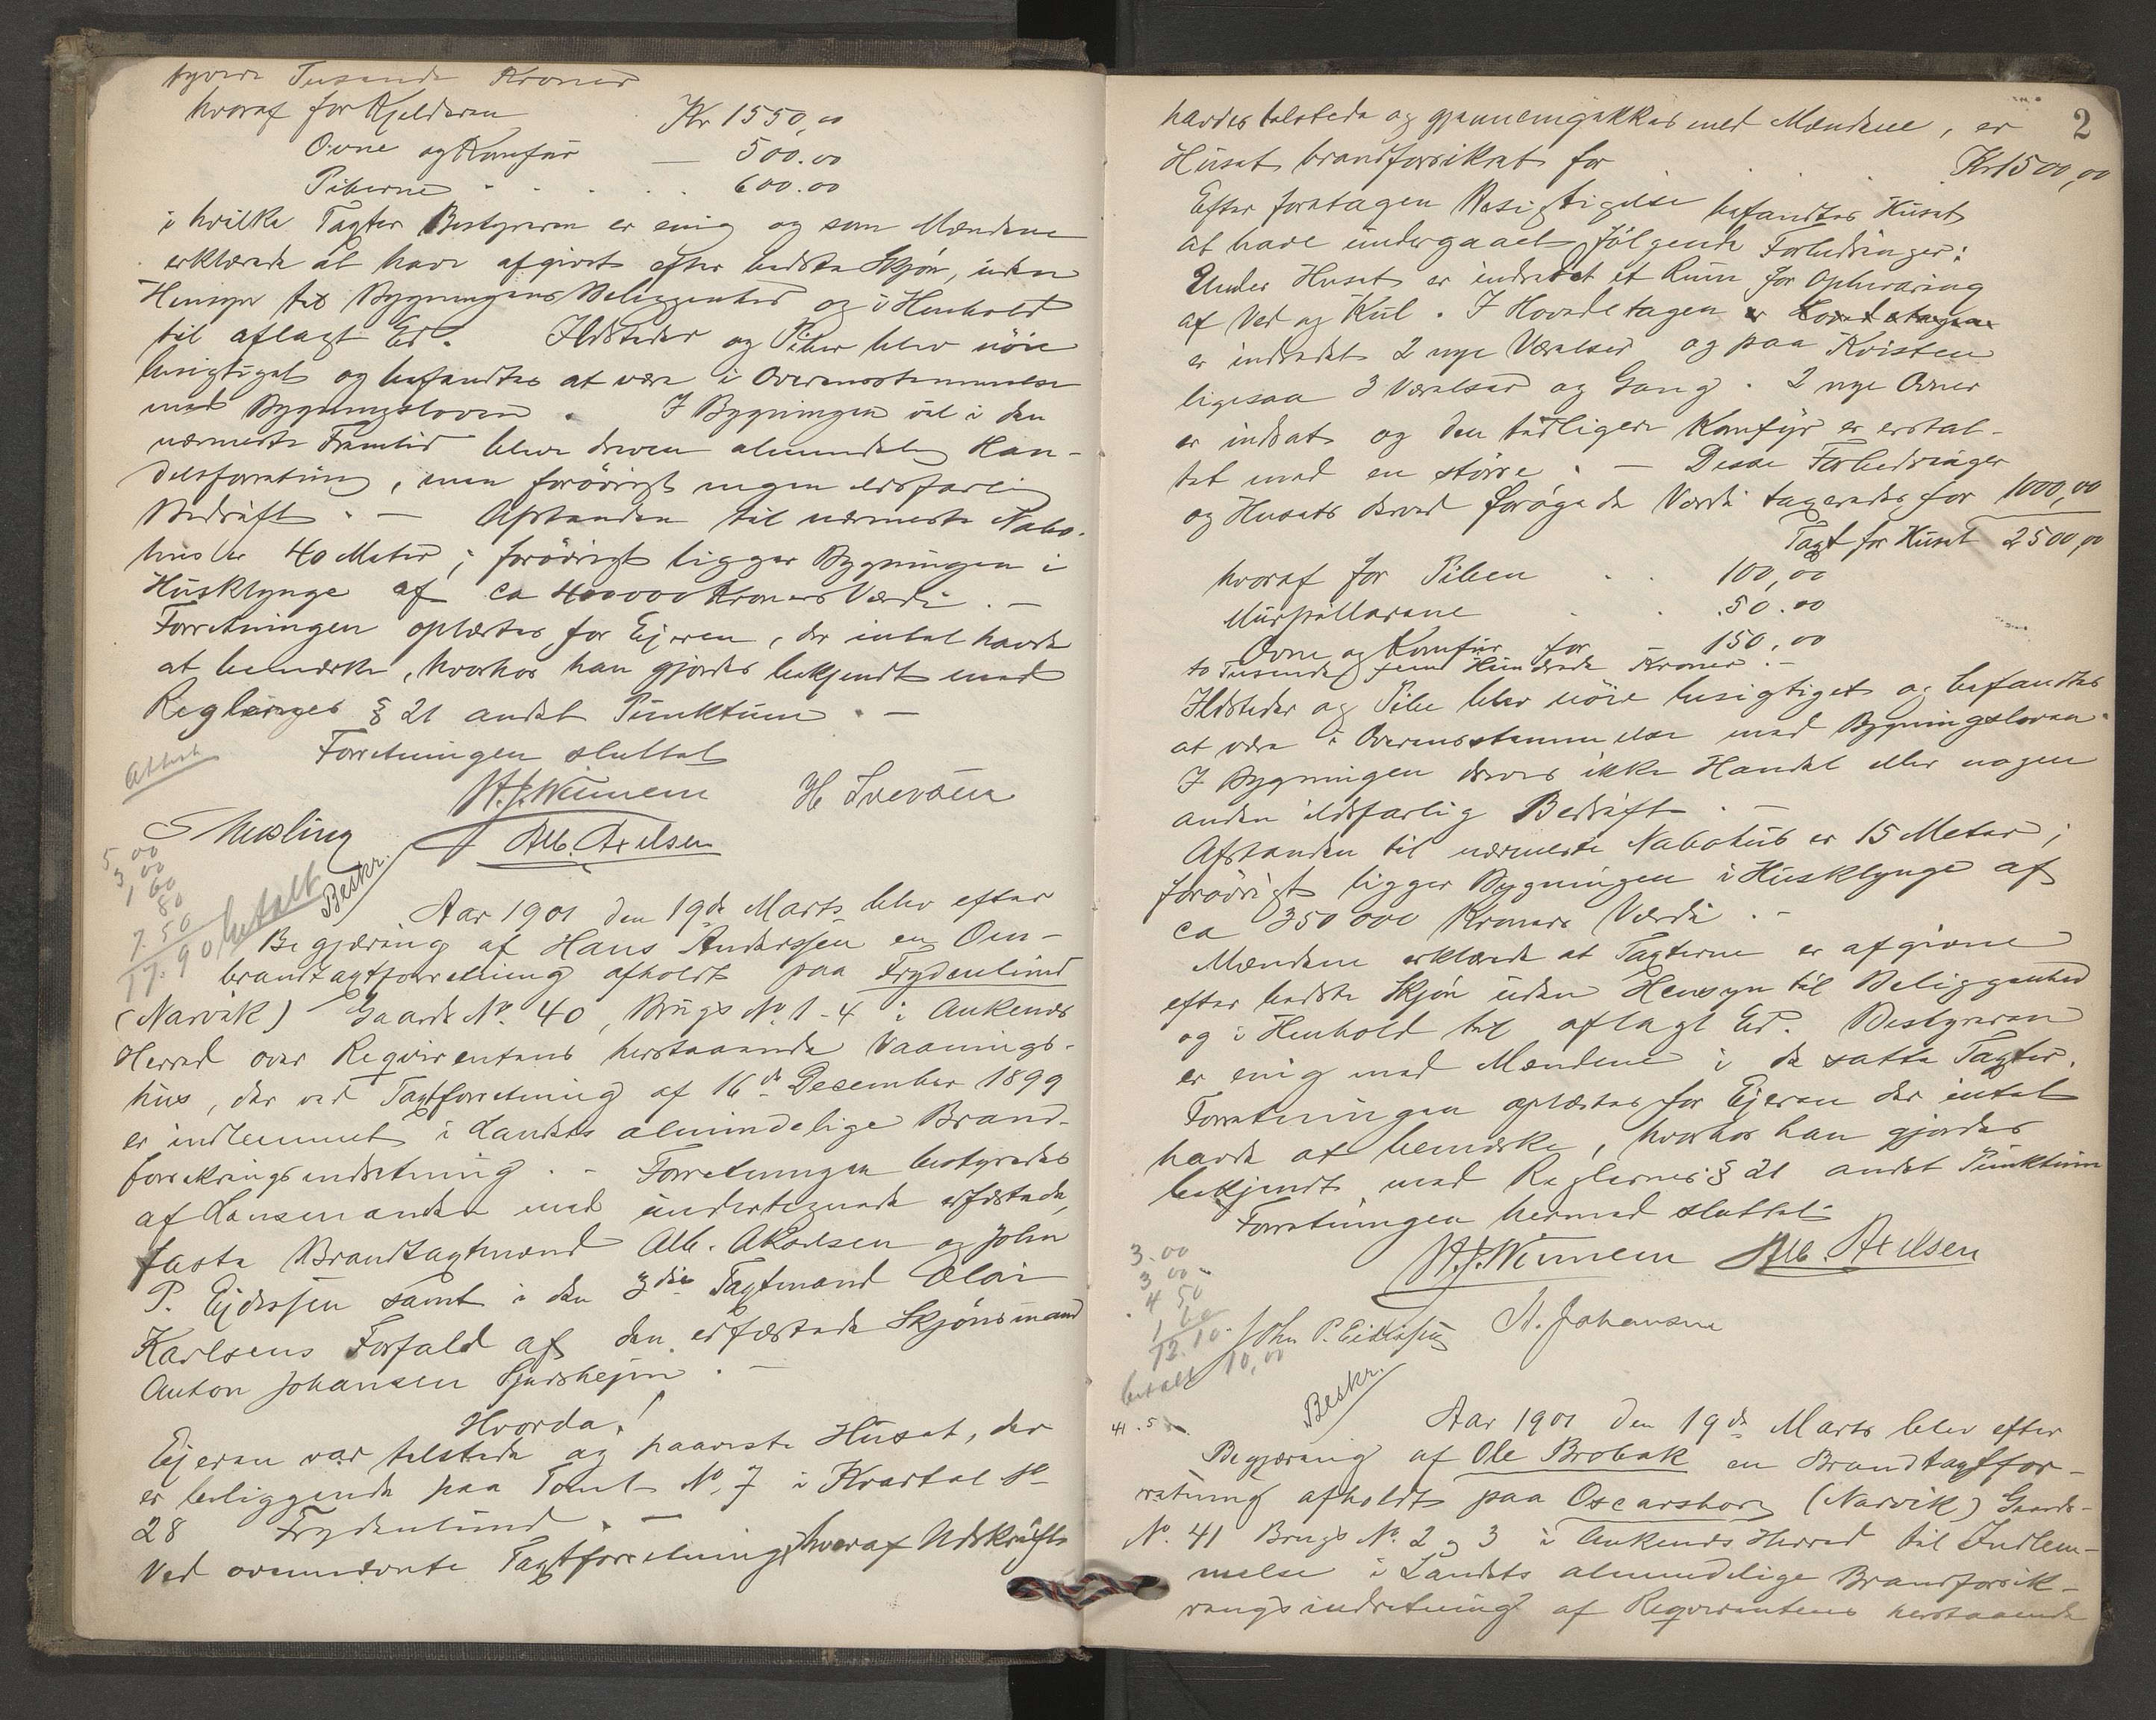 tyvende Tusende Kroner
hvoraf for Kjelderen Kr 1550,00
Ovne og Komfur — 500.00
Piberne - . . . . 600.00
i hvilke Taxter Bestyreren er enig og som Mændene
erklærede at have afgivet efter bedste Skjøn, uden
Hensyn til Bygningens Beliggenhed og i Henhold
til aflagt Ed. Ildsteder og Piber blev nöie
besigtiget og befandtes at være i Overensstemmelse
med Bygningsloven. I Bygningen vil i den
nærmeste Fremtid blive dreven almindelig Han-
delsforretning, men forövrigt ingen ildsfarlig
Bedrift. — Afstanden til nærmeste Nabo-
hus er 40 Meter; forövrigt ligger Bygningen i
Husklynge af ca 400000 Kroners Værdi. —
Forretningen oplæstes for Ejeren, der intet havde
at bemærke, hvorhos han gjordes bekjendt med
Reglernes § 21 andet Punktum. —
Attest
Forretningen sluttet
H. J. Winnem
Alb. Axelsen
5 00
3 00
1 60
80
7. 50
17. 90 betalt
Beskr.
Aar 1901 den 19de Marts blev efter
Begjæring af Hans Anderssen en Om-
brandtaxtforretning afholdt paa Frydenlund
(Narvik) Gaards No. 40, Brugs No. 1-4 i Ankenes
Herred over Reqvirentens herstaaende Vaanings-
hus, der ved Taxtforretning af 16de Desember 1899
er indlemmet i Landets almindelige Brand-
forsikringsindretning. - Forretningen bestyredes
af Lensmanden med undertegnede edfæstede,
faste Brandtaxtmænd Alb. Akselsen og John
P. Ejdissen samt i den 3die Taxtmand Olai
Karlsens Forfald af den edfæstede Skjönsmand
Anton Johansen . —
Hvorda!
Ejeren var tilstede og paaviste Huset, der
er beliggende paa Tomt No. 7 i Kvartal No
28 Frydenlund. —
Ved ovennævnte Taxtforretning, hvoraf Udskrift
2
havdes tilstede og gjennemgikkes med Mændene, er
Huset brandforsikret for . . . Kr 1500,00
Efter foretagen Besigtigelse befandtes Huset
at have undergaaet følgende Forbedringer:
Under Huset er indredet et Rum for Opbevaring
af Ved og Kul. I Hovedetagen
er indredet 2 nye Værelser og paa Kvisten
ligesaa 3 Værelser og Gang. 2 nye Ovner
er indsat og den tidligere Komfyr er erstat-
tet med en större. — Disse Forbedringer
og Husets derved forøgede Værdi taxeredes for 1000,00
Taxt for Huset 2500,00
hvoraf for Piben . . 100,00
Murpillarene . . 50.00
Ovne og Komfur for 150,00
to Tusende fem Hundrede Kroner. —
Ildsteder og Pibe blev nöie besigtiget og befandtes
at være i Overensstemmelse med Bygningsloven.
I Bygningen drives ikke Handel eller nogen
anden ildsfarlig Bedrift. —
Afstanden til nærmeste Nabohus er 15 Meter;
forövrigt ligger Bygningen i Husklynge af
ca 350 000 Kroners Værdi. -
Mændene erklærede at Taxterne er afgivne
efter bedste Skjön uden Hensyn til Beliggenhed
og i Henhold til aflagt Ed. Bestyreren
er enig med Mændene i de satte Taxter.
Forretningen oplæstes for Ejeren der intet
havde at bemærke, hvorhos han gjordes
bekjendt med Reglernes § 21 andet Punktum
Forretningen hermed sluttet
H. J. Winnem Alb. Axelsen
3.00
3 00
4 50
1 60
12.10
betalt 10,00
John P. Eidissen A. Johansen
Beskr.
Aar 1901 den 19de Marts blev efter
Begjæring af Ole Brobak en Brandtaxtfor-
retning afholdt paa Oscarsborg (Narvik) Gaards-
No. 41 Brugs No. 2 og 3 i Ankenes Herred til Indlem-
melse i Landets almindelige Brandforsik-
ringsindretning af Reqvirentens herstaaende